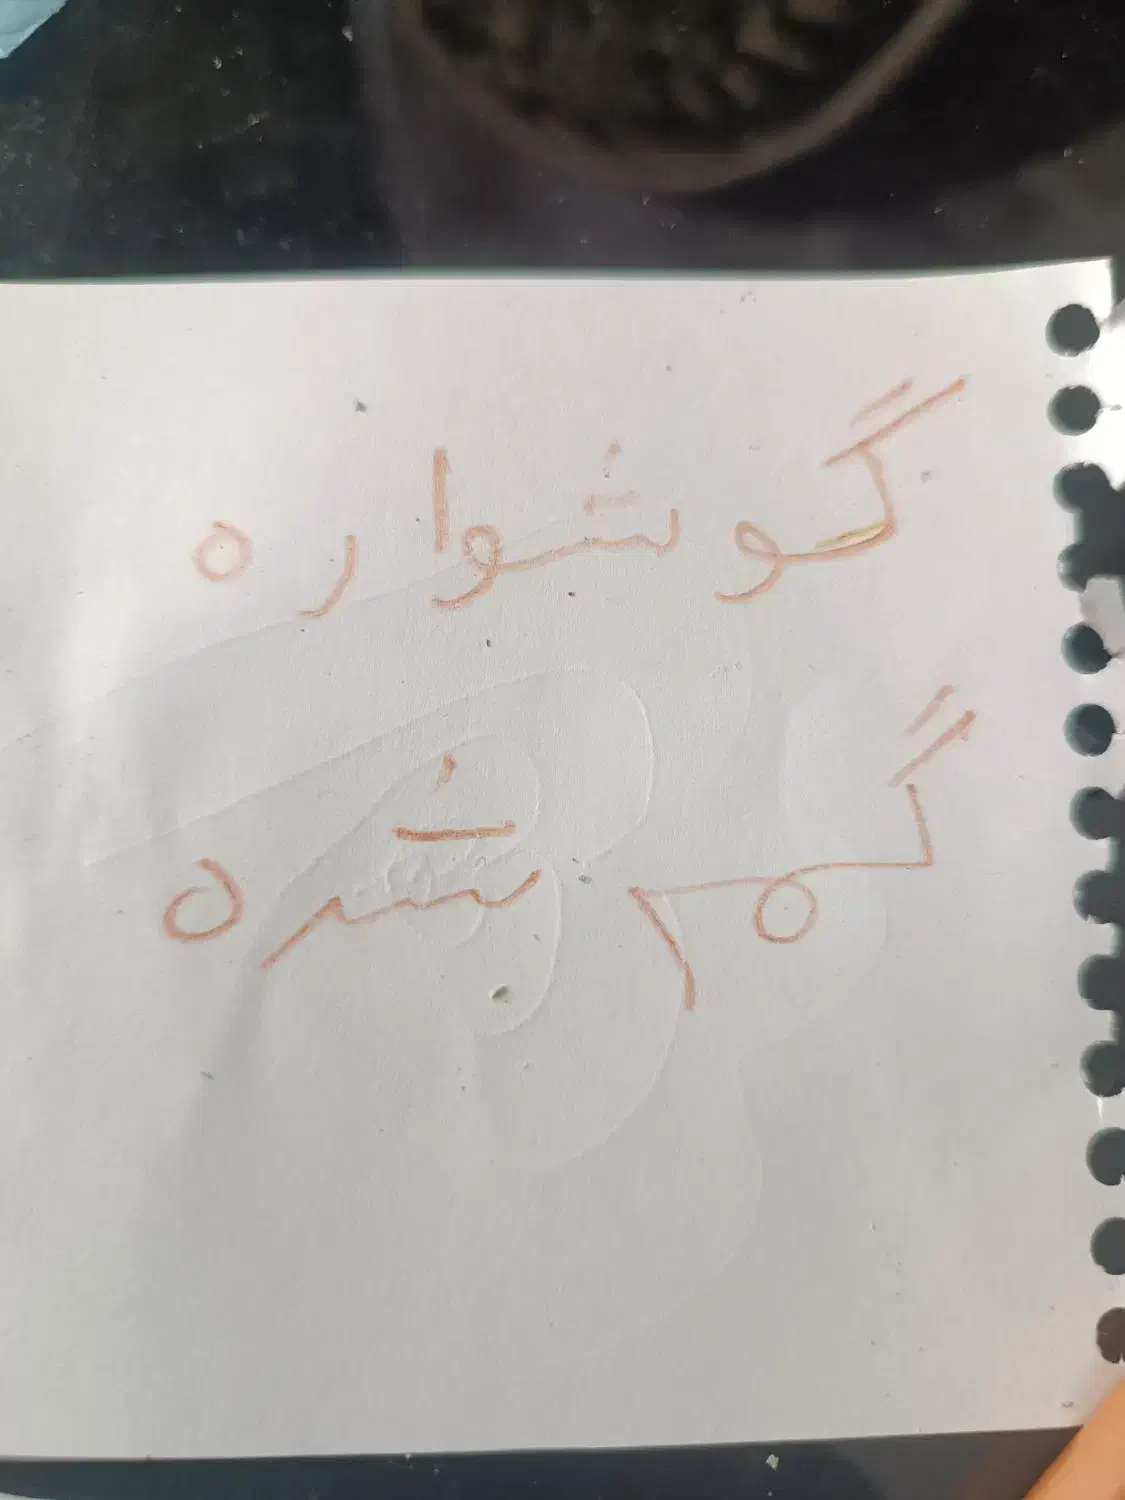 گوشواره
گم شده